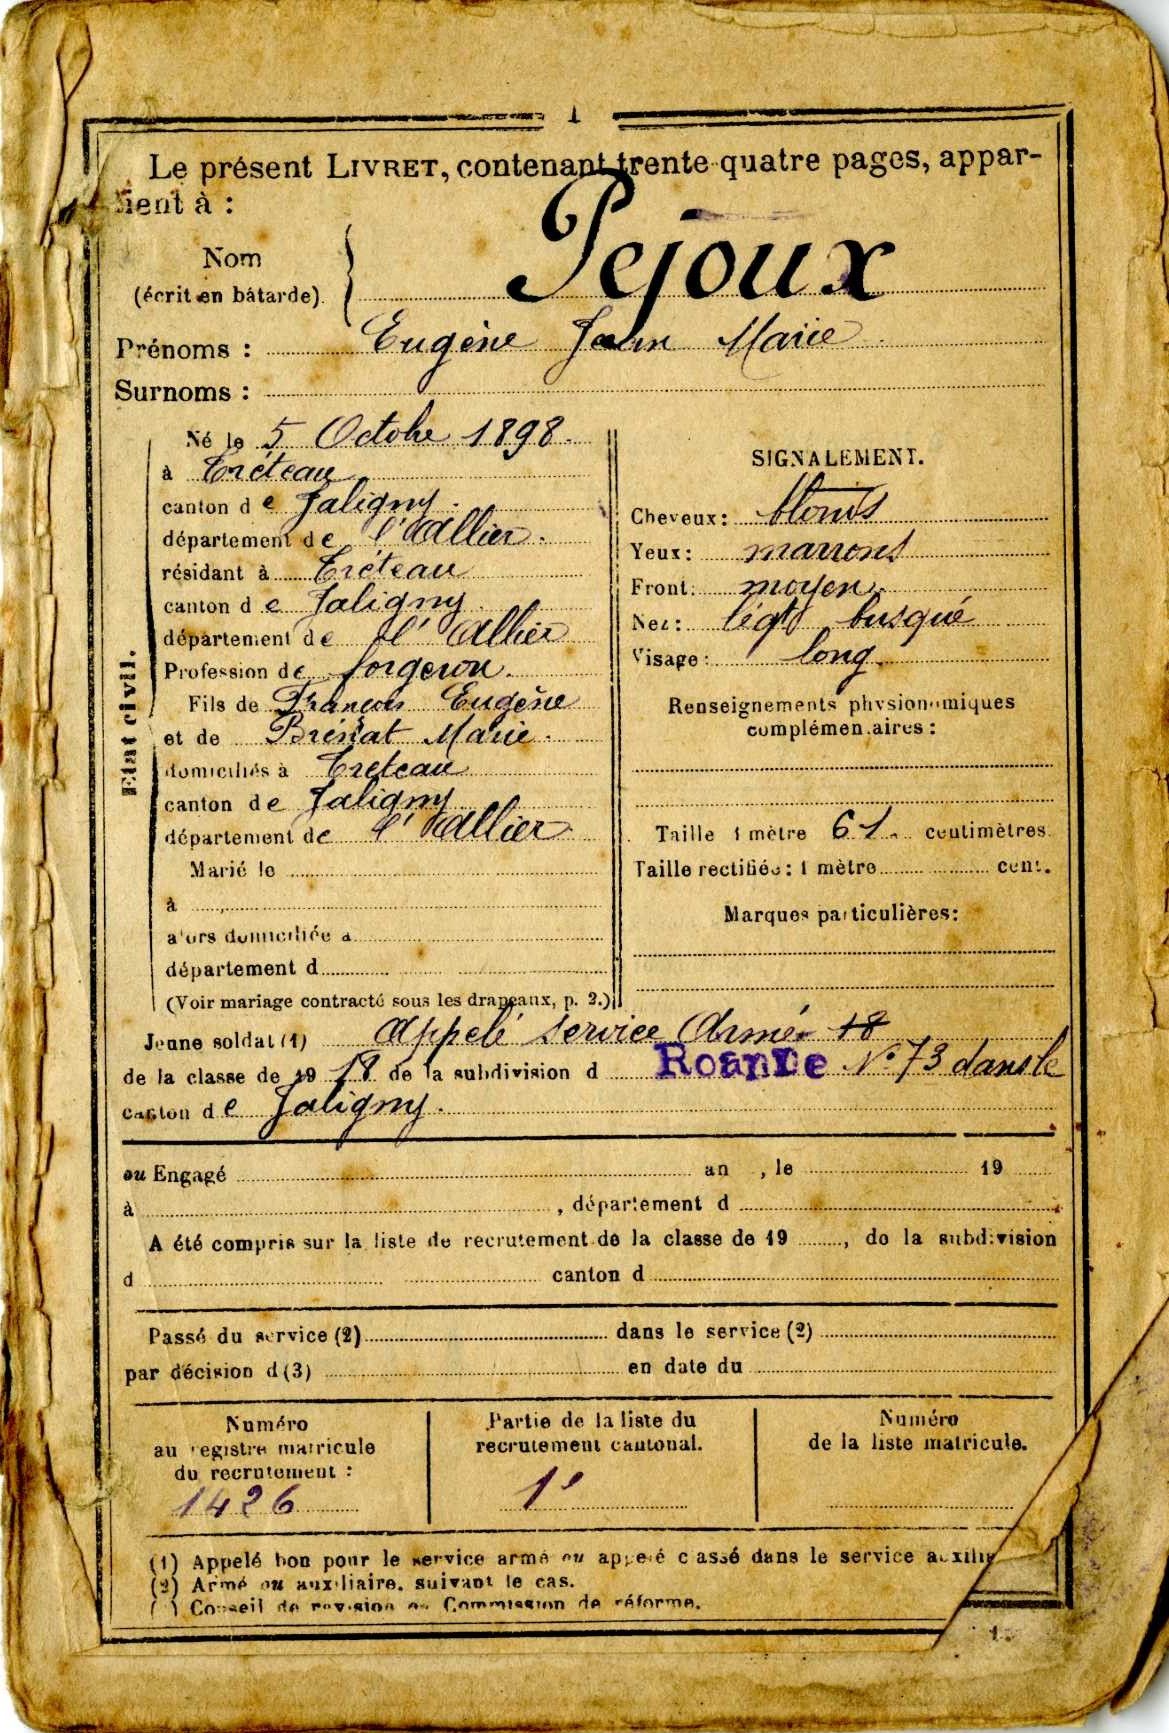 1
Le présent LIVRET, contenant trente-quatre pages, appar-
tient à :
Nom
(écrit en bâtarde)
Pejoux
Prénoms : Eugène Jean Marie
Surnoms :
Etat civil.
Né le 5 Octobre 1898.
à Créteau
canton de Jaligny.
département de l'Allier.
résidant à Créteau
canton de Jaligny.
département de l'Allier
Profession de forgeron.
Fils de François Eugène
et de Brénat Marie.
domiciliés à Créteau
canton de Jaligny
département de l'Allier.
Marié le
à
alors domiciliée à
département d
(Voir mariage contracté sous les drapeaux, p. 2.)
SIGNALEMENT.
Cheveux: blonds
Yeux: marrons
Front: moyen.
Nez: légt busqué
Visage: long.
Renseignements physionomiques
complémentaires :
Taille 1 mètre 61. centimètres
Taille rectifiée : 1 mètre cent.
Marques particulières:
Jeune soldat (1) Appelé service Armée 18
de la classe de 19 18 de la subdivision d Roanne N° 73 dans le
canton de Jaligny.
ou Engagé an , le 19
à , département d
A été compris sur la liste de recrutement de la classe de 19 , de la subdivision
d canton d
Passé du service (2) dans le service (2)
par décision d (3) en date du
Numéro
au registre matricule
du recrutement :
1426
Partie de la liste du
recrutement cantonal.
1e
Numéro
de la liste matricule.
(1) Appelé bon pour le service armé ou appelé classé dans le service auxili
(2) Armé ou auxiliaire, suivant le cas.
( ) Conseil de revision ou Commission de réforme.
1.